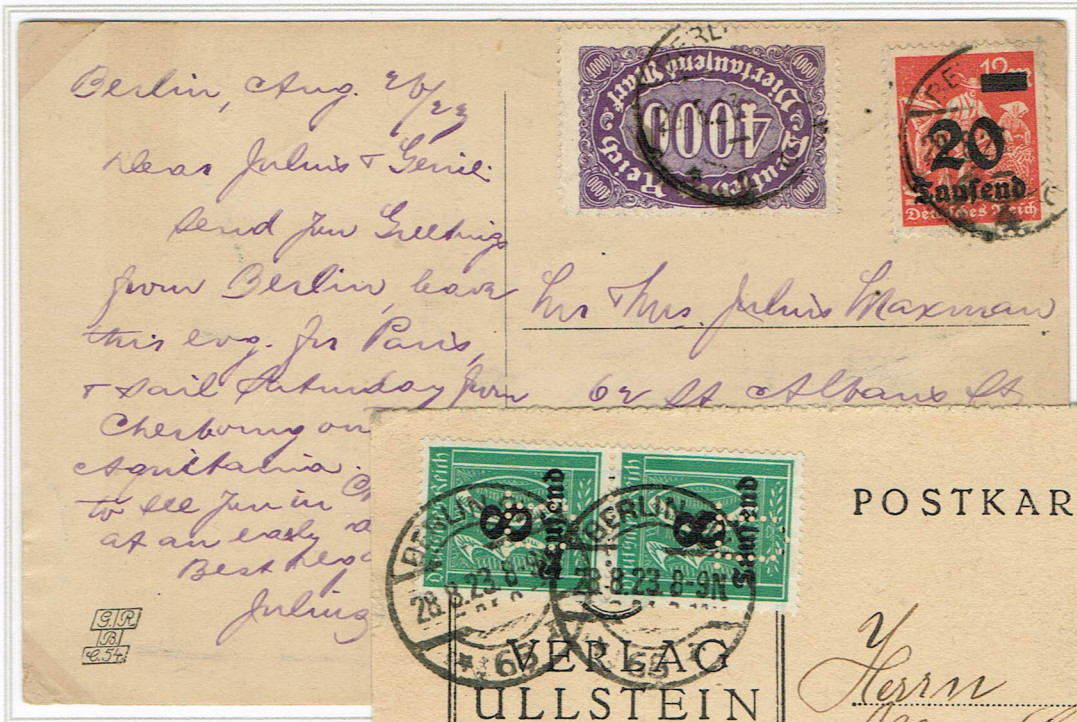 Berlin, Aug. 26/23
Dear Julius &
Send you Greetings
from Berlin, leave
this evg. for Paris,
& sail Saturday from
Cherbourg on
Aquitania.
to see you in
at an early
Best Rega
Julius
G.R.
B.
C.54.
4000
Viertausend Mark
Deutsches Reich
4000
4000
4000
4000
BERL
12 m
20
Tausend
Deutsches Reich
Mr & Mrs. Julius Waxman
62 St Albans St
8
Tausend
8
Tausend
BERLIN
28.8.23 8-9N
BERLIN
28.8.23 8-9N
POSTKAR
VERLAG
ULLSTEIN
Herrn